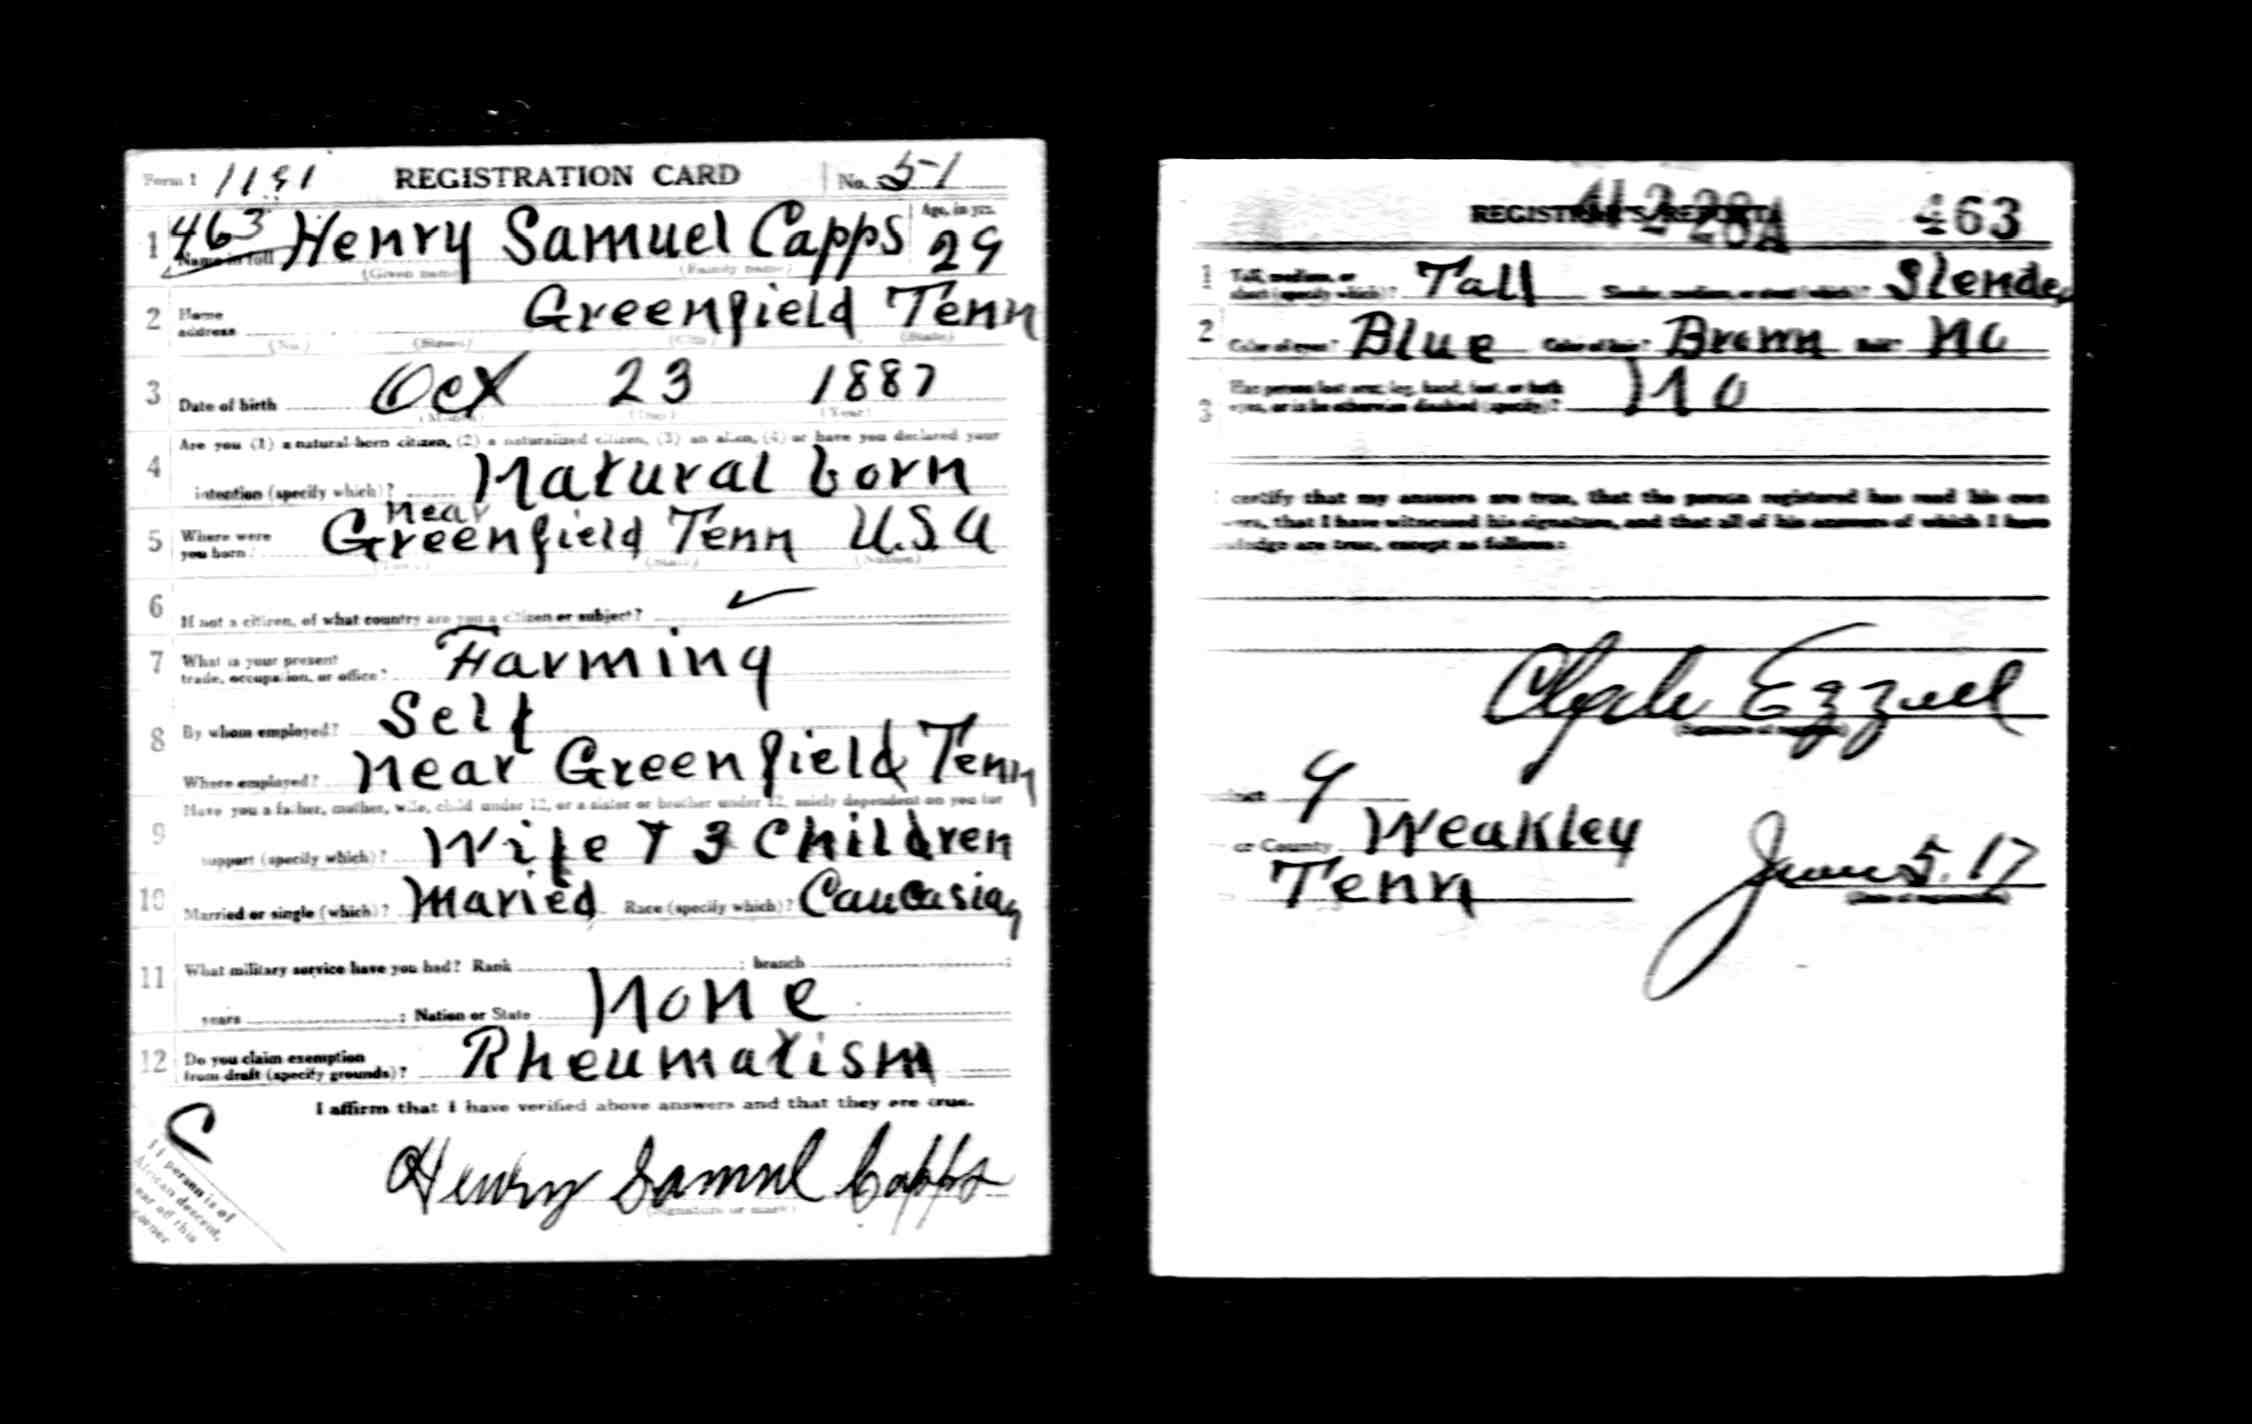 Form 1 1191 REGISTRATION CARD No. 51
1 463 Henry Samuel Capps Age, in yrs. 29
Name in full (Given name) (Family name)
2 Home address Greenfield Tenn
(No.) (Street) (City) (State)
3 Date of birth Oct 23 1887
(Month) (Day) (Year)
4 Are you (1) a natural-born citizen, (2) a naturalized citizen, (3) an alien, (4) or have you declared your
intention (specify which)? Natural born
near
5 Where were you born? Greenfield Tenn U.S.A
(Town) (State) (Nation)
6 If not a citizen, of what country are you a citizen or subject? ✓
7 What is your present trade, occupation, or office? Farming
8 By whom employed? Self
Where employed? Near Greenfield Tenn
9 Have you a father, mother, wife, child under 12, or a sister or brother under 12, solely dependent on you for
support (specify which)? Wife & 3 Children
10 Married or single (which)? Maried Race (specify which)? Caucasian
11 What military service have you had? Rank ; branch ;
years ; Nation or State None
12 Do you claim exemption from draft (specify grounds)? Rheumatism
I affirm that I have verified above answers and that they are true.
C
Henry Samuel Capps
(Signature or mark)
If person is of
African descent,
tear off this
corner
REGISTRAR'S REPORT 41-2-28A 463
1 Tall, medium, or short (specify which)? Tall Slender, medium, or stout (which)? Slender
2 Color of eyes? Blue Color of hair? Brown Bald? No
3 Has person lost arm, leg, hand, foot, or both
eyes, or is he otherwise disabled (specify)? No
I certify that my answers are true, that the person registered has read his own
that I have witnessed his signature, and that all of his answers of which I have
are true, except as follows:
Clyde Ezzell
(Signature of registrar)
9
or County Weakley
Tenn June 5. 17
(Date of registration)